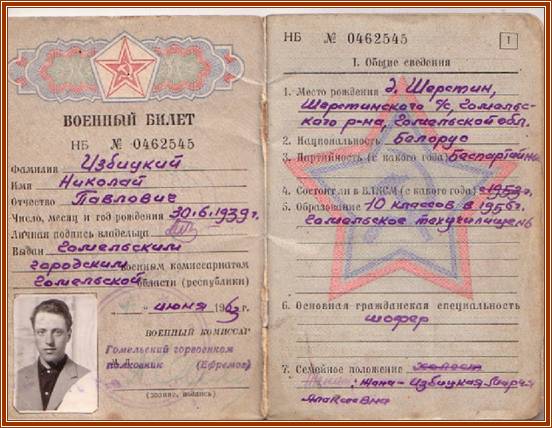 ВОЕННЫЙ БИЛЕТ
НБ № 0462545
Фамилия Избицкий
Имя Николай
Отчество Павлович
Число, месяц и год рождения 30.6.1939 г.
Личная подпись владельца
Выдан Гомельским
городским военным комиссариатом
Гомельской области (республики)
" июня 1963 г.
ВОЕННЫЙ КОМИССАР
Гомельский горвоенком
полковник (Ефремов)
(звание, подпись)
НБ № 0462545
1
I. Общие сведения
1. Место рождения д. Шерстин,
Шерстинского с/с, Гомельс-
кого р-на, Гомельской обл.
2. Национальность Белорус
3. Партийность (с какого года) Беспартийный
4. Состоит ли в ВЛКСМ (с какого года) с 1953 г.
5. Образование 10 классов в 1956 г.
Гомельское техучилище
6. Основная гражданская специальность
шофер
7. Семейное положение холост
Жена - Избицкая Мария
Алексеевна